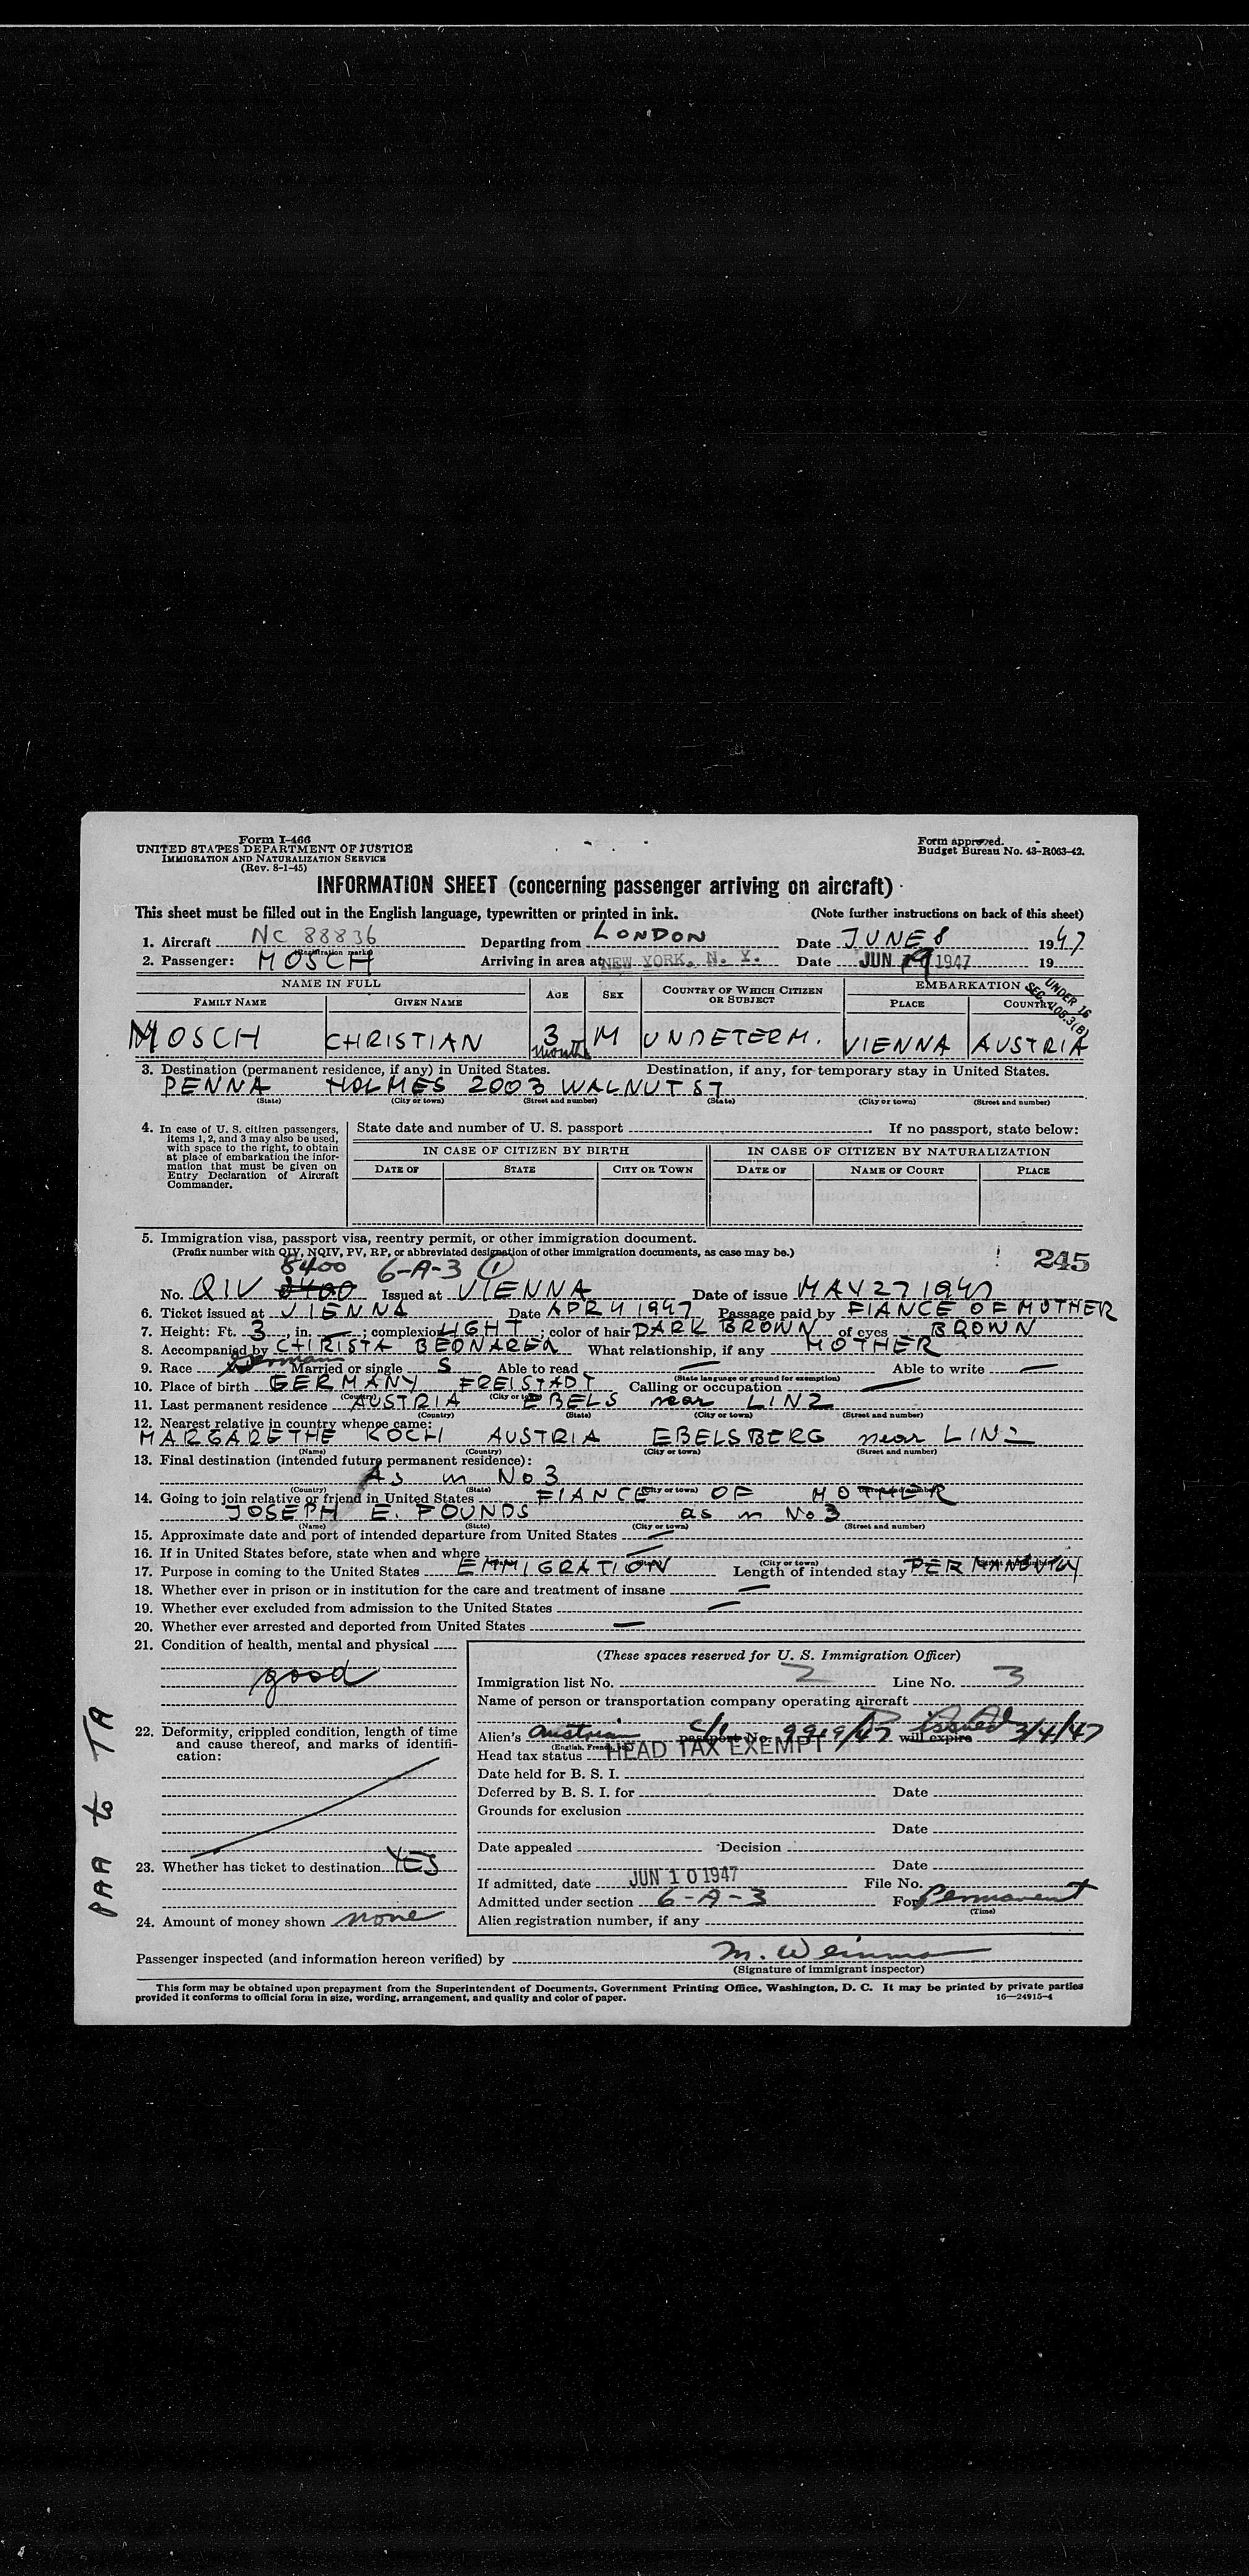 Form I-466
UNITED STATES DEPARTMENT OF JUSTICE
IMMIGRATION AND NATURALIZATION SERVICE
(Rev. 8-1-45)
Form approved.
Budget Bureau No. 43-R063-42.
INFORMATION SHEET (concerning passenger arriving on aircraft)
This sheet must be filled out in the English language, typewritten or printed in ink. (Note further instructions on back of this sheet)
1. Aircraft NC 88836 Departing from LONDON Date JUNE 8 1947
(Registration mark)
2. Passenger: MOSCH Arriving in area at NEW YORK, N. Y. Date JUN 9 1947 19
NAME IN FULL AGE SEX COUNTRY OF WHICH CITIZEN OR SUBJECT EMBARKATION
FAMILY NAME GIVEN NAME PLACE COUNTRY
UNDER 16
SEC. 105.3(B)
MOSCH CHRISTIAN 3 months M UNDETERM. VIENNA AUSTRIA
3. Destination (permanent residence, if any) in United States. Destination, if any, for temporary stay in United States.
PENNA HOLMES 2003 WALNUT ST
(State) (City or town) (Street and number) (State) (City or town) (Street and number)
4. In case of U. S. citizen passengers, items 1, 2, and 3 may also be used, with space to the right, to obtain at place of embarkation the information that must be given on Entry Declaration of Aircraft Commander.
State date and number of U. S. passport If no passport, state below:
IN CASE OF CITIZEN BY BIRTH IN CASE OF CITIZEN BY NATURALIZATION
DATE OF STATE CITY OR TOWN DATE OF NAME OF COURT PLACE
5. Immigration visa, passport visa, reentry permit, or other immigration document.
(Prefix number with QIV, NQIV, PV, RP, or abbreviated designation of other immigration documents, as case may be.)
245
8400 6-A-3 1
No. QIV 8400 Issued at VIENNA Date of issue MAY 27 1947
6. Ticket issued at VIENNA Date APR 4 1947 Passage paid by FIANCE OF MOTHER
7. Height: Ft. 3 in. — ; complexion LIGHT ; color of hair DARK BROWN of eyes BROWN
8. Accompanied by CHRISTA What relationship, if any MOTHER
9. Race German Married or single S Able to read — Able to write —
(State language or ground for exemption)
10. Place of birth GERMANY FREISTADT Calling or occupation —
(Country) (City or town)
11. Last permanent residence AUSTRIA EBELS near LINZ
(Country) (State) (City or town) (Street and number)
12. Nearest relative in country whence came:
MARGARETHE KOCH AUSTRIA EBELSBERG near LINZ
(Name) (Country) (City or town) (Street and number)
13. Final destination (intended future permanent residence):
As in No 3
(Country) (State) (City or town) (Street and number)
14. Going to join relative or friend in United States FIANCE OF MOTHER
JOSEPH E. POUNDS as in No 3
(Name) (State) (City or town) (Street and number)
15. Approximate date and port of intended departure from United States —
16. If in United States before, state when and where —
(State) (City or town) (Street and number)
17. Purpose in coming to the United States EMMIGRATION Length of intended stay
18. Whether ever in prison or in institution for the care and treatment of insane —
19. Whether ever excluded from admission to the United States —
20. Whether ever arrested and deported from United States —
21. Condition of health, mental and physical
good
22. Deformity, crippled condition, length of time and cause thereof, and marks of identification:
23. Whether has ticket to destination YES
24. Amount of money shown none
(These spaces reserved for U. S. Immigration Officer)
Immigration list No. 2 Line No. 3
Name of person or transportation company operating aircraft
Alien's Austrian c/i passport No. 9919/47 will expire issued 3/4/47
(English, French, etc.)
Head tax status HEAD TAX EXEMPT
Date held for B. S. I.
Deferred by B. S. I. for Date
Grounds for exclusion
Date
Date appealed Decision
Date
If admitted, date JUN 10 1947 File No.
Admitted under section 6-A-3 For permanent
(Time)
Alien registration number, if any
PAA to TA
Passenger inspected (and information hereon verified) by M. Weinman
(Signature of immigrant inspector)
This form may be obtained upon prepayment from the Superintendent of Documents, Government Printing Office, Washington, D. C. It may be printed by private parties
provided it conforms to official form in size, wording, arrangement, and quality and color of paper. 16—24915-4